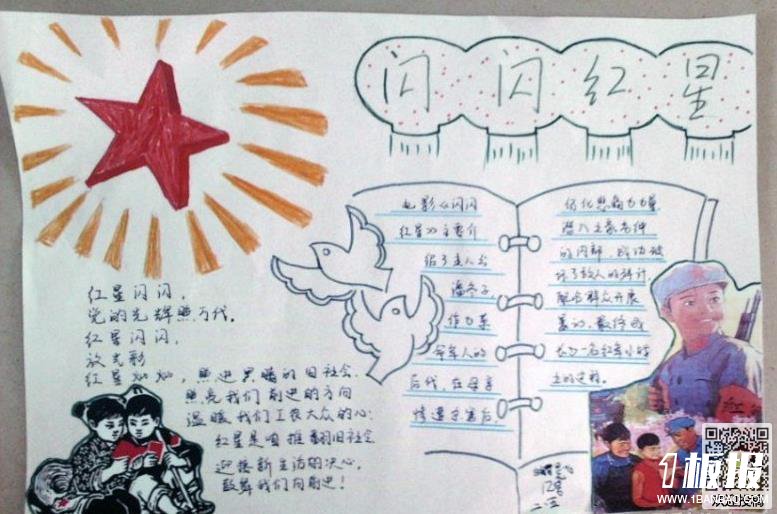 闪闪红星
红星闪闪,
党的光辉照万代。
红星闪闪,
放光彩
红星灿灿,照进黑暗的旧社会.
照亮我们前进的方向
温暖我们工农大众的心;
红星是咱推翻旧社会
迎接新生活的决心,
鼓舞我们向前进!
电影《闪闪
红星》主要介
绍了主人公
潘冬子
作为革
命军人的
后代,在母亲
惨遭杀害后,
仍化悲痛为力量
潜入土豪老钟
的内部,成功破
坏了敌人的诡计,
配合群众开展
暴动,最终成
长为一名红军小战
士的过程。
12号
二、五
1板报
WWW.1BANBAO.COM
欢迎投稿